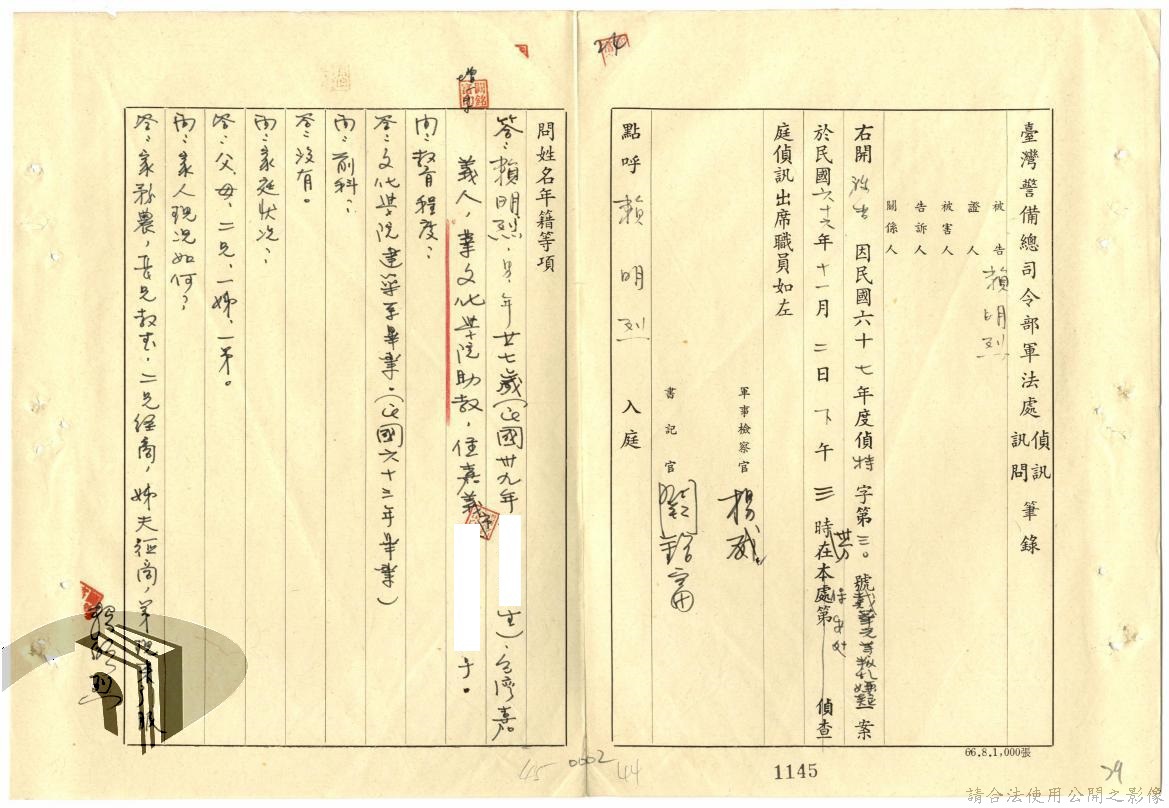 24
臺灣警備總司令部軍法處偵訊訊問筆錄
被告 賴明烈
證人
被害人
告訴人
關係人
右開被告因民國六十七年度偵特字第三〇號戴華光等叛亂嫌疑案
於民國六十六年十一月二日下午三時在本處第 偵查
庭偵訊出席職員如左
軍事檢察官 楊威
書記官
點呼 賴明烈 入庭
66.8.1,000張
1145
44
29
問姓名年籍等項
答:賴明烈,男,年廿七歲(民國卅九年 生),台灣嘉
義人,業文化學院助教,住嘉義 子。
問:教育程度?
答:文化學院建築系畢業。(民國六十三年畢業)
問:前科?
答:沒有。
問:家庭狀況?
答:父、母、二兄、一姊、一弟。
問:家人現況如何?
答:家務農,長兄教書,二兄經商,姊夫經商,弟現未了服
賴明烈
45
0002
請合法使用公開之影像